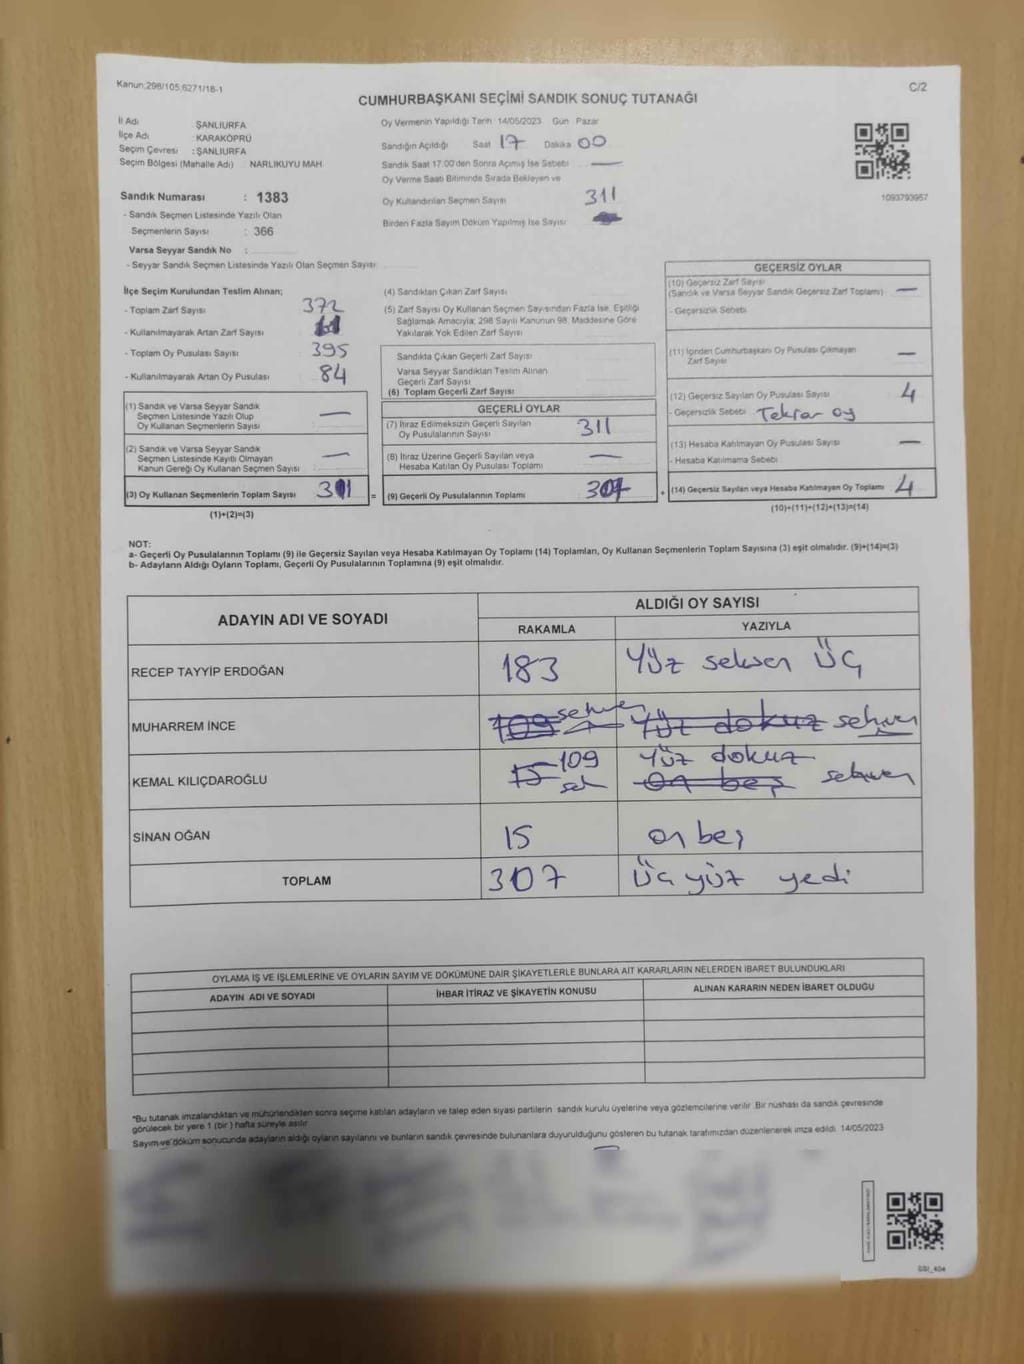 Kanun:298/105,6271/18-1
C/2
CUMHURBAŞKANI SEÇİMİ SANDIK SONUÇ TUTANAĞI
İl Adı ŞANLIURFA
İlçe Adı : KARAKÖPRÜ
Seçim Çevresi : ŞANLIURFA
Seçim Bölgesi (Mahalle Adı) NARLIKUYU MAH
Sandık Numarası : 1383
- Sandık Seçmen Listesinde Yazılı Olan
Seçmenlerin Sayısı : 366
Varsa Seyyar Sandık No :
- Seyyar Sandık Seçmen Listesinde Yazılı Olan Seçmen Sayısı
Oy Vermenin Yapıldığı Tarih 14/05/2023 Gün Pazar
Sandığın Açıldığı Saat 17 Dakika 00
Sandık Saat 17:00'den Sonra Açılmış İse Sebebi —
Oy Verme Saati Bitiminde Sırada Bekleyen ve
Oy Kullandırılan Seçmen Sayısı 311
Birden Fazla Sayım Döküm Yapılmış İse Sayısı
1093793957
İlçe Seçim Kurulundan Teslim Alınan;
- Toplam Zarf Sayısı 372
- Kullanılmayarak Artan Zarf Sayısı
- Toplam Oy Pusulası Sayısı 395
- Kullanılmayarak Artan Oy Pusulası 84
(1) Sandık ve Varsa Seyyar Sandık
Seçmen Listesinde Yazılı Olup
Oy Kullanan Seçmenlerin Sayısı —
(2) Sandık ve Varsa Seyyar Sandık
Seçmen Listesinde Kayıtlı Olmayan
Kanun Gereği Oy Kullanan Seçmen Sayısı —
(3) Oy Kullanan Seçmenlerin Toplam Sayısı 311 =
(1)+(2)=(3)
(4) Sandıktan Çıkan Zarf Sayısı
(5) Zarf Sayısı Oy Kullanan Seçmen Sayısından Fazla İse, Eşitliği
Sağlamak Amacıyla; 298 Sayılı Kanunun 98. Maddesine Göre
Yakılarak Yok Edilen Zarf Sayısı
Sandıkta Çıkan Geçerli Zarf Sayısı
Varsa Seyyar Sandıktan Teslim Alınan
Geçerli Zarf Sayısı
(6) Toplam Geçerli Zarf Sayısı
GEÇERLİ OYLAR
(7) İtiraz Edilmeksizin Geçerli Sayılan
Oy Pusulalarının Sayısı 311
(8) İtiraz Üzerine Geçerli Sayılan veya
Hesaba Katılan Oy Pusulası Toplamı —
(9) Geçerli Oy Pusulalarının Toplamı 307 +
GEÇERSİZ OYLAR
(10) Geçersiz Zarf Sayısı
(Sandık ve Varsa Seyyar Sandık Geçersiz Zarf Toplamı) —
- Geçersizlik Sebebi
(11) İçinden Cumhurbaşkanı Oy Pusulası Çıkmayan
Zarf Sayısı —
(12) Geçersiz Sayılan Oy Pusulası Sayısı 4
- Geçersizlik Sebebi Tekrar oy
(13) Hesaba Katılmayan Oy Pusulası Sayısı —
- Hesaba Katılmama Sebebi
(14) Geçersiz Sayılan veya Hesaba Katılmayan Oy Toplamı 4
(10)+(11)+(12)+(13)=(14)
NOT:
a- Geçerli Oy Pusulalarının Toplamı (9) ile Geçersiz Sayılan veya Hesaba Katılmayan Oy Toplamı (14) Toplamları, Oy Kullanan Seçmenlerin Toplam Sayısına (3) eşit olmalıdır. (9)+(14)=(3)
b- Adayların Aldığı Oyların Toplamı, Geçerli Oy Pusulalarının Toplamına (9) eşit olmalıdır.
ADAYIN ADI VE SOYADI
ALDIĞI OY SAYISI
RAKAMLA YAZIYLA
RECEP TAYYİP ERDOĞAN 183 Yüz seksen üç
MUHARREM İNCE 109 sehven Yüz dokuz sehven
KEMAL KILIÇDAROĞLU 15 109 seh Yüz dokuz on beş sehven
SİNAN OĞAN 15 on beş
TOPLAM 307 Üç yüz yedi
OYLAMA İŞ VE İŞLEMLERİNE VE OYLARIN SAYIM VE DÖKÜMÜNE DAİR ŞİKAYETLERLE BUNLARA AİT KARARLARIN NELERDEN İBARET BULUNDUKLARI
ADAYIN ADI VE SOYADI İHBAR İTİRAZ VE ŞİKAYETİN KONUSU ALINAN KARARIN NEDEN İBARET OLDUĞU
*Bu tutanak imzalandıktan ve mühürlendikten sonra seçime katılan adayların ve talep eden siyasi partilerin sandık kurulu üyelerine veya gözlemcilerine verilir. Bir nüshası da sandık çevresinde
görülecek bir yere 1 (bir) hafta süreyle asılır
Sayım ve döküm sonucunda adayların aldığı oyların sayılarını ve bunların sandık çevresinde bulunanlara duyurulduğunu gösteren bu tutanak tarafımızdan düzenlenerek imza edildi. 14/05/2023
SSI_404